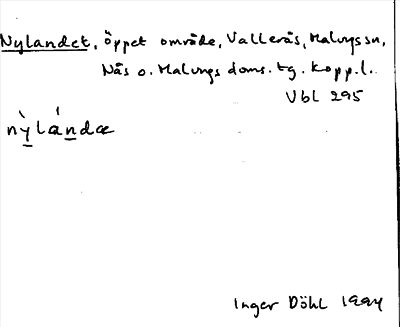 Nylandet, öppet område, Vallerås, Malungs sn,
Nås o. Malungs doms. tg. Kopp. l.
Vbl 295
nỳ̲lán̲dæ
Inger Döhl 1994